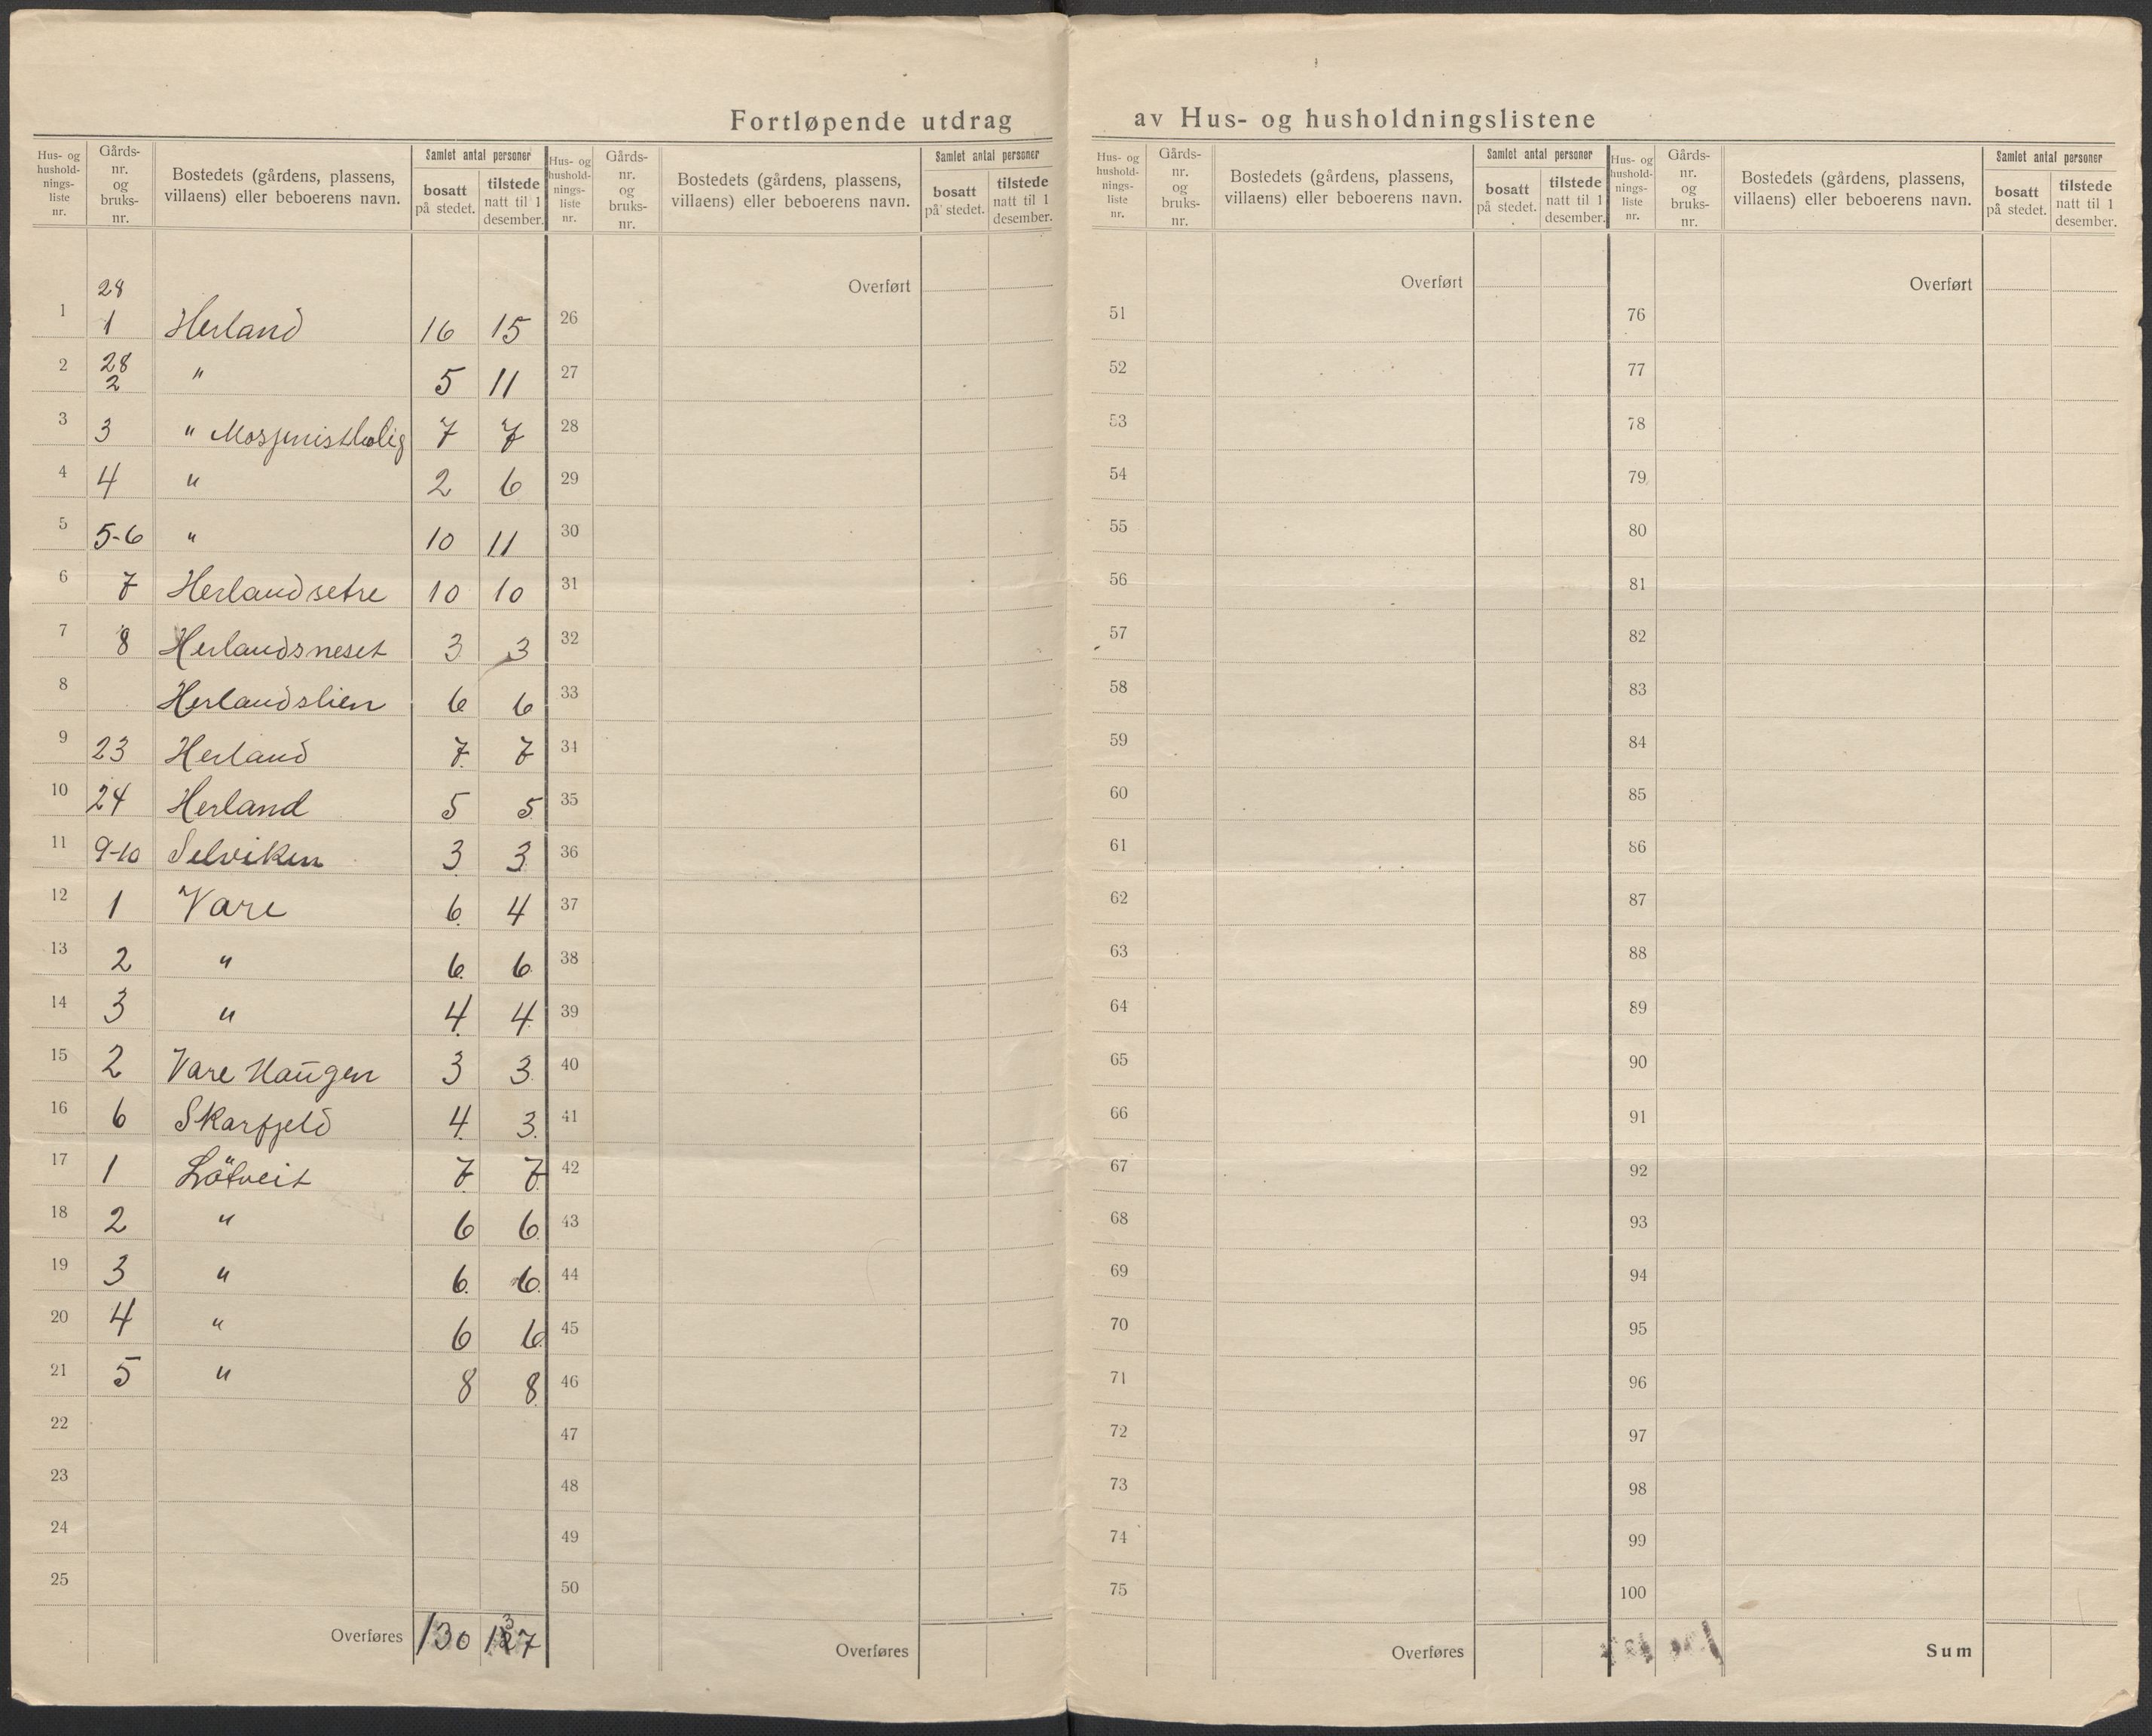 Fortløpende utdrag av Hus- og husholdningslistene
Hus- og husholdnings-liste nr. Gårds-nr. og bruks-nr. Bostedets (gårdens, plassens, villaens) eller beboerens navn. Samlet antal personer bosatt på stedet. tilstede natt til 1 desember.
Hus- og husholdnings-liste nr. Gårds-nr. og bruks-nr. Bostedets (gårdens, plassens, villaens) eller beboerens navn. Samlet antal personer bosatt på stedet. tilstede natt til 1 desember.
Hus- og husholdnings-liste nr. Gårds-nr. og bruks-nr. Bostedets (gårdens, plassens, villaens) eller beboerens navn. Samlet antal personer bosatt på stedet. tilstede natt til 1 desember.
Hus- og husholdnings-liste nr. Gårds-nr. og bruks-nr. Bostedets (gårdens, plassens, villaens) eller beboerens navn. Samlet antal personer bosatt på stedet. tilstede natt til 1 desember.
Overført Overført Overført
1 28 1 Herland 16 15 26 51 76
2 28 2 " 5 11 27 52 77
3 3 " 7 7 28 53 78
4 4 " 2 6 29 54 79
5 5-6 " 10 11 30 55 80
6 7 Herlandsetre 10 10 31 56 81
7 8 Herlandsneset 3 3 32 57 82
8 Herlandslien 6 6 33 58 83
9 23 Herland 7 7 34 59 84
10 24 Herland 5 5 35 60 85
11 9-10 Selviken 3 3 36 61 86
12 1 Vare 6 4 37 62 87
13 2 " 6 6 38 63 88
14 3 " 4 4 39 64 89
15 2 Vare Haugen 3 3 40 65 90
16 6 Skarfjeld 4 3 41 66 91
17 1 Lötveit 7 7 42 67 92
18 2 " 6 6 43 68 93
19 3 " 6 6 44 69 94
20 4 " 6 6 45 70 95
21 5 " 8 8 46 71 96
22 47 72 97
23 48 73 98
24 49 74 99
25 50 75 100
Overføres 130 137 Overføres Overføres Sum